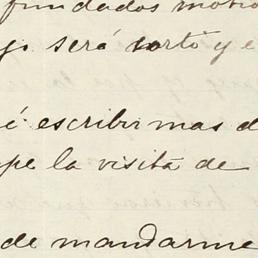 fundados motiv
será corto y e
é escribir mas d
pe la visita de
de mandarme